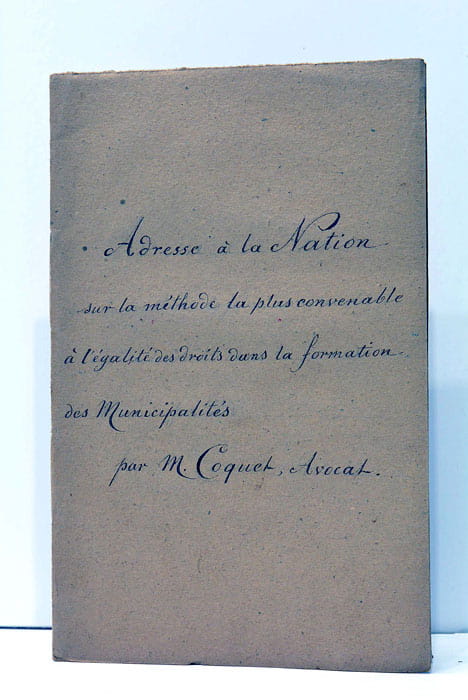 Adresse à la Nation
sur la méthode la plus convenable
à l'égalité des droits dans la formation
des Municipalités
par M. Coquet, Avocat.